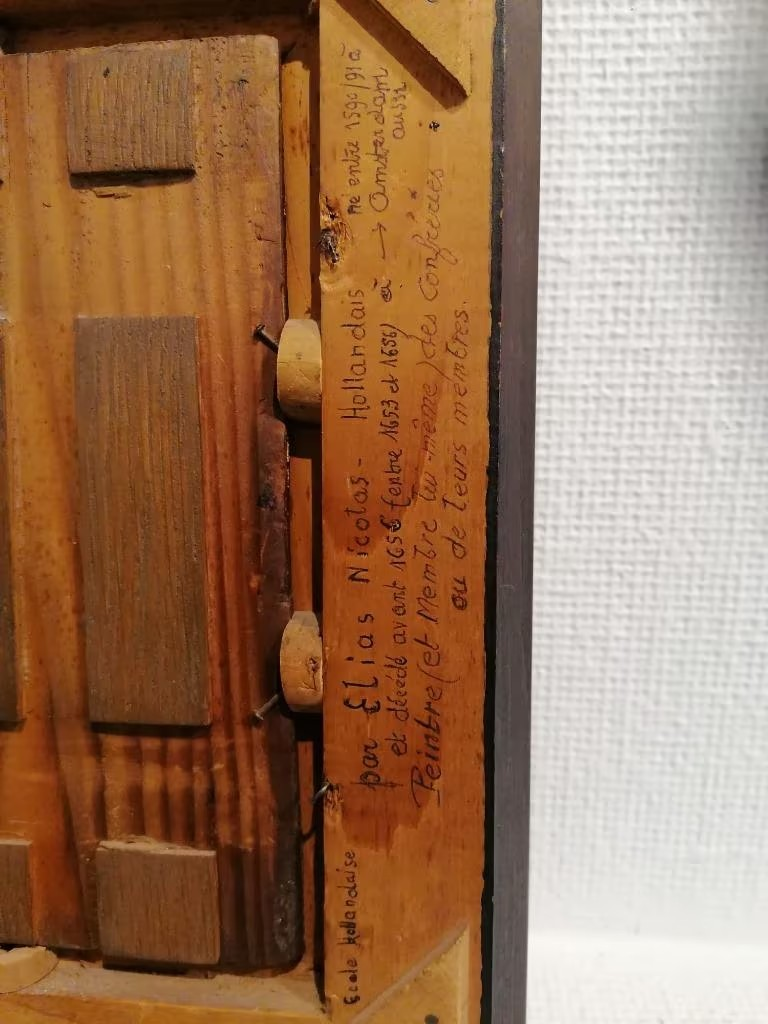 Ecole Hollandaise
par Elias Nicolas - Hollandais né entre 1590/91 à
et décédé avant 1656 (entre 1653 et 1656) à → Amsterdam
aussi
Peintre (et Membre lui-même) des Confréries
ou de leurs membres.